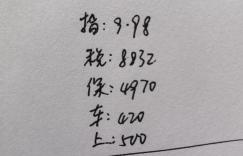 指:9.98
税:8832
保:4970
车:420
上:500